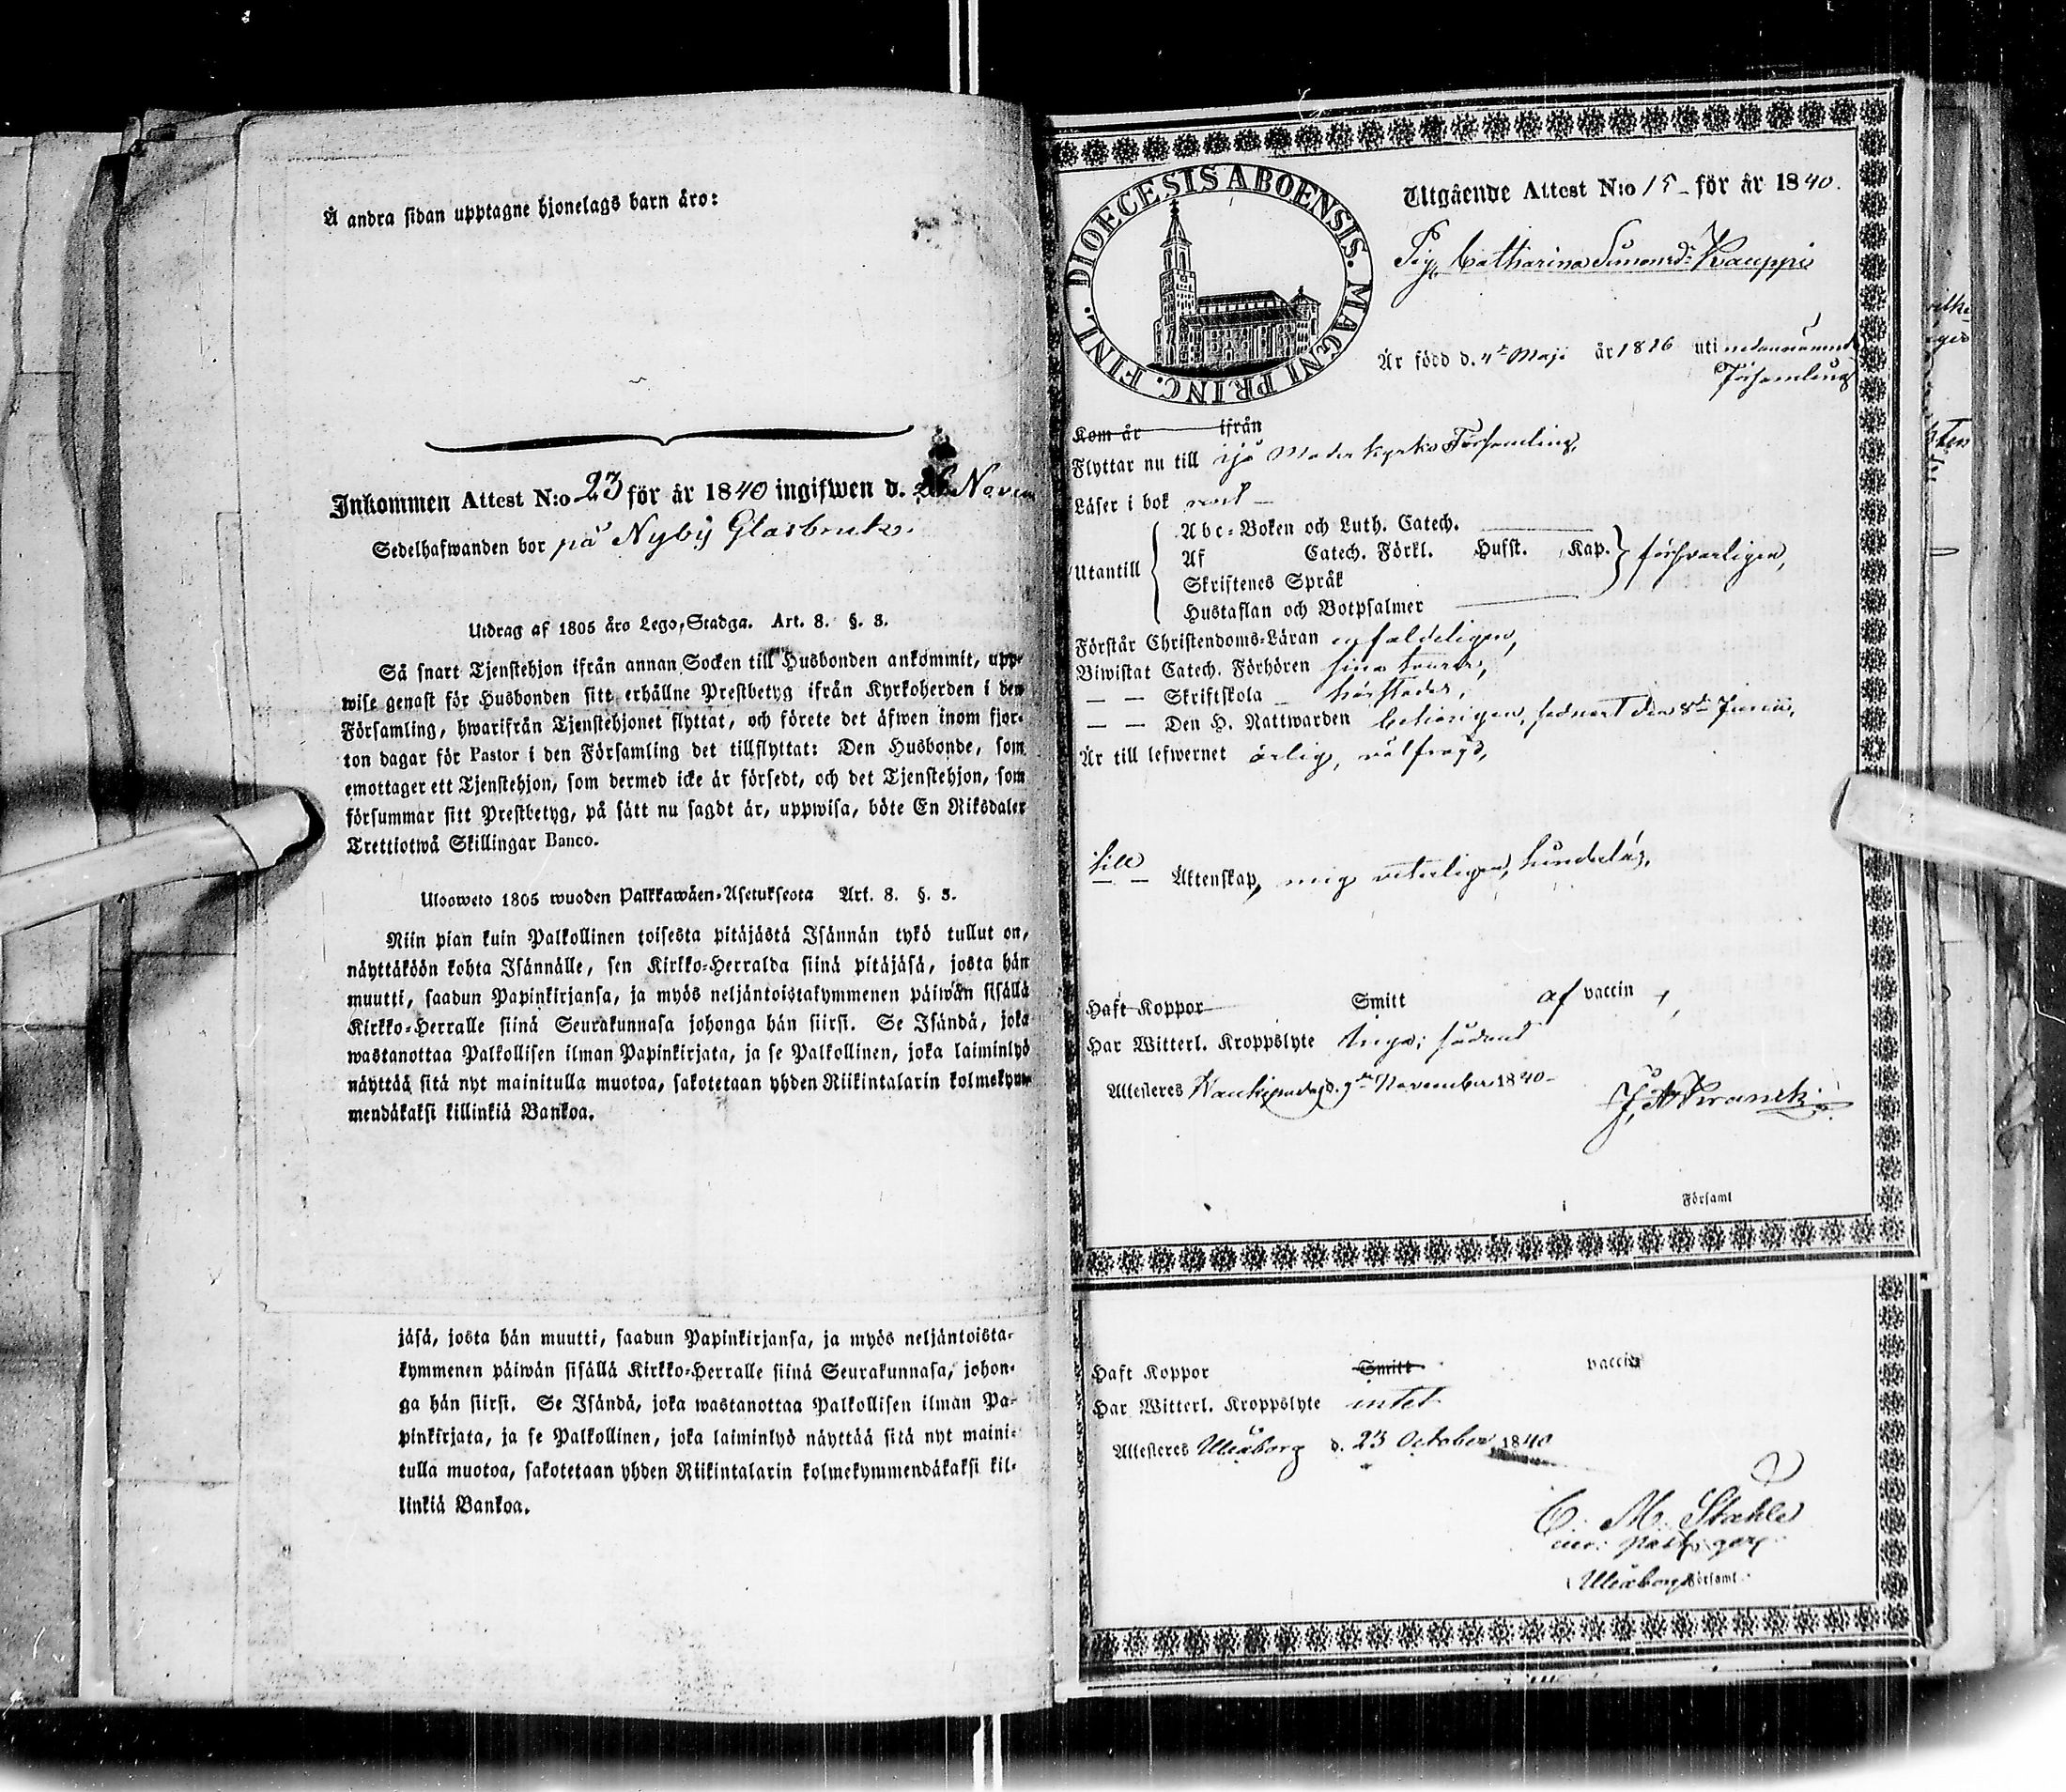 Å andra sidan upptagne hjonelags barn äro:
Inkommen Attest N:o 23 för år 1840 ingifwen d. 26 Novem
Sedelhafwanden bor på Nyby Glasbruk.
Utdrag af 1805 års Lego-Stadga. Art. 8. §. 3.
Så snart Tjenstehjon ifrån annan Socken till Husbonden ankommit, upp-
wise genast för Husbonden sitt erhållne Prestbetyg ifrån Kyrkoherden i den
Församling, hwarifrån Tjenstehjonet flyttat, och förete det äfwen inom fjor-
ton dagar för Pastor i den Församling det tillflyttat: Den Husbonde, som
emottager ett Tjenstehjon, som dermed icke är försedt, och det Tjenstehjon, som
försummar sitt Prestbetyg, på sätt nu sagdt är, uppwisa, böte En Riksdaler
Trettiotwå Skillingar Banco.
Ulosweto 1805 wuoden Palkkawäen-Asetuksesta Art. 8. §. 3.
Niin pian kuin Palkollinen toisesta pitäjästä Isännän tykö tullut on,
näyttäköön kohta Isännälle, sen Kirkko-Herralda siinä pitäjäsä, josta hän
muutti, saadun Papinkirjansa, ja myös neljäntoistakymmenen päiwän sisällä
Kirkko-Herralle siinä Seurakunnasa johonga hän siirsi. Se Isändä, joka
wastanottaa Palkollisen ilman Papinkirjata, ja se Palkollinen, joka laiminlyö
näyttää sitä nyt mainitulla muotoa, sakotetaan yhden Riikintalarin kolmekym-
mendäkaksi killinkiä Bankoa.
jäsä, josta hän muutti, saadun Papinkirjansa, ja myös neljäntoista-
kymmenen päiwän sisällä Kirkko-Herralle siinä Seurakunnasa, johon-
ga hän siirsi. Se Isändä, joka wastanottaa Palkollisen ilman Pa-
pinkirjata, ja se Palkollinen, joka laiminlyö näyttää sitä nyt maini-
tulla muotoa, sakotetaan yhden Riikintalarin kolmekymmendäkaksi kil-
linkiä Bankoa.
DIOECESIS ABOENSIS. MAGNI PRINC. FINL.
Utgående Attest N:o 15 för år 1840.
Pig. Catharina Simonsd:r Kauppi
Är född d. 4de Maji år 1816 uti nedannämnde
Församling
Kom år ifrån
Flyttar nu till Ijo Moder kyrko Församling,
Läser i bok
Utantill
Abc-Boken och Luth. Catech.
Af Catech. Förkl. Husst. Kap. försvarligen,
Skriftenes Språk
Hustaflan och Botpsalmer
Förstår Christendoms-Läran enfaldeligen,
Biwistat Catech. Förhören sina
— — Skriftskola
— — Den H. Nattwarden behörigen, sednast den 8de Junii,
Är till lefwernet ärlig, välfrägd,
till Äktenskap, mig veterligen, hinderlös.
Haft Koppor Smitt af vaccin,
Har Witterl. Kroppslyte inga;
Attesteras Haukipudas d. 9de November 1840
Församl
Haft Koppor Smitt vaccin
Har Witterl. Kroppslyte intet
Attesteras Uleåborg d. 23 October 1840
C. M. Stahle
i Uleåborgs Församl.